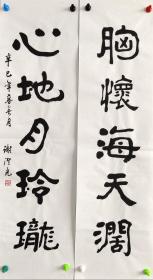 胸懷海天濶
心地月玲瓏
辛巳年春月
謝澄光